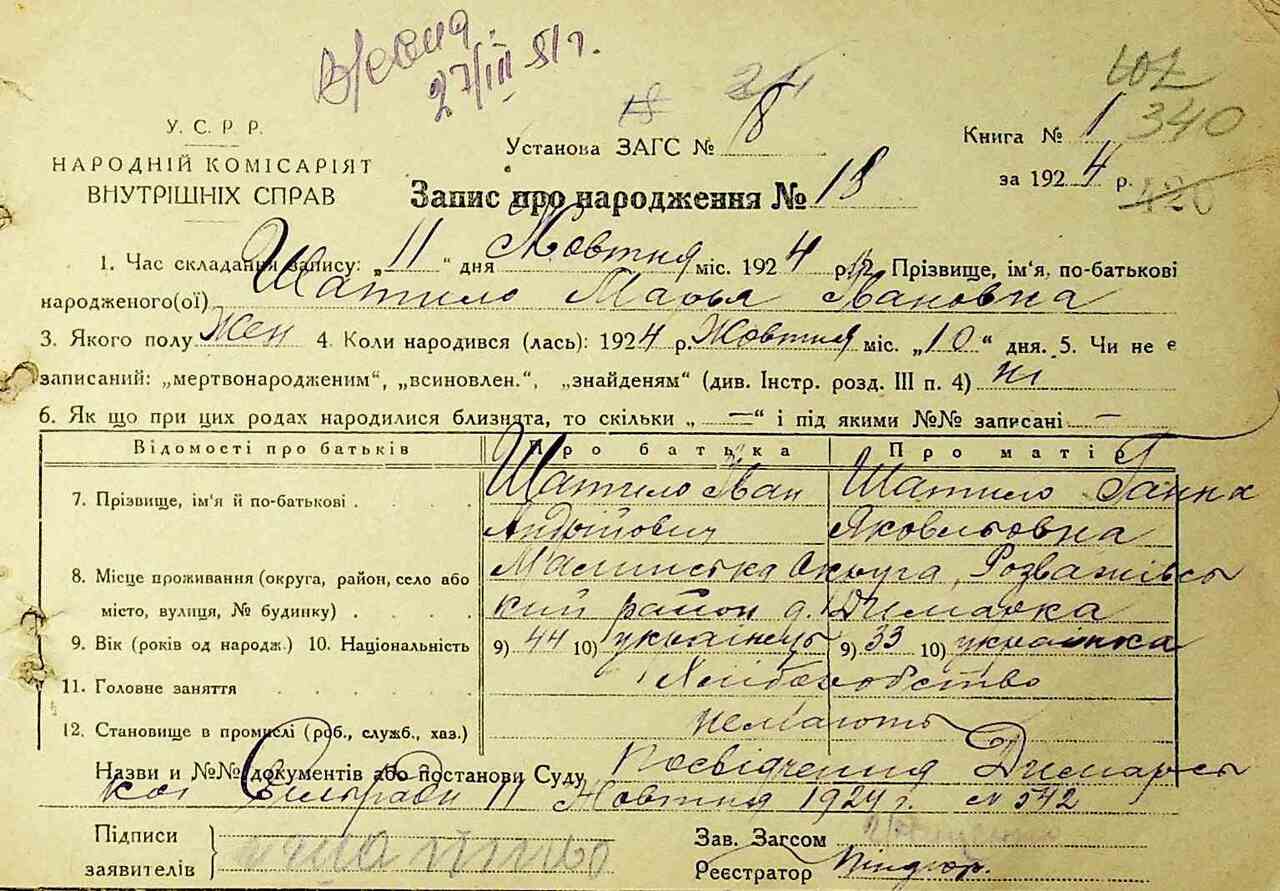 27/III 51 г.
340
У. С. Р. Р.
НАРОДНІЙ КОМІСАРІЯТ
ВНУТРІШНІХ СПРАВ
Установа ЗАГС № 8
Книга № 1
за 1924 р.
Запис про народження № 18
1. Час складання запису: „11“ дня Жовтня міс. 1924 р. 2. Прізвище, ім'я, по-батькові
народженого(ої) Шатило Марья Івановна
3. Якого полу Жен 4. Коли народився (лась): 1924 р. Жовтня міс. „10“ дня. 5. Чи не є
записаний: „мертвонародженим“, „всиновлен.“, „знайденям“ (див. Інстр. розд. III п. 4) ні
6. Як що при цих родах народилися близнята, то скільки „—“ і під якими №№ записані —
Відомості про батьків Про батька Про матір
7. Прізвище, ім'я й по-батькові Шатило Іван Шатило Ганна
Андрійович Яковльовна
8. Місце проживання (округа, район, село або Малинська Округа, Розважівсь
місто, вулиця, № будинку) кий район д. Димарка
9. Вік (років од народж.) 10. Національність 9) 44 10) українець 9) 33 10) українка
11. Головне заняття Хліборобство
12. Становище в промислі (роб., служб., хаз.) немають
Назви и №№ документів або постанови Суду Посвідчення Димарсь
кої Сільради 11 Жовтня 1924 г. № 542
Підписи
заявителів
Зав. Загсом
Реєстратор